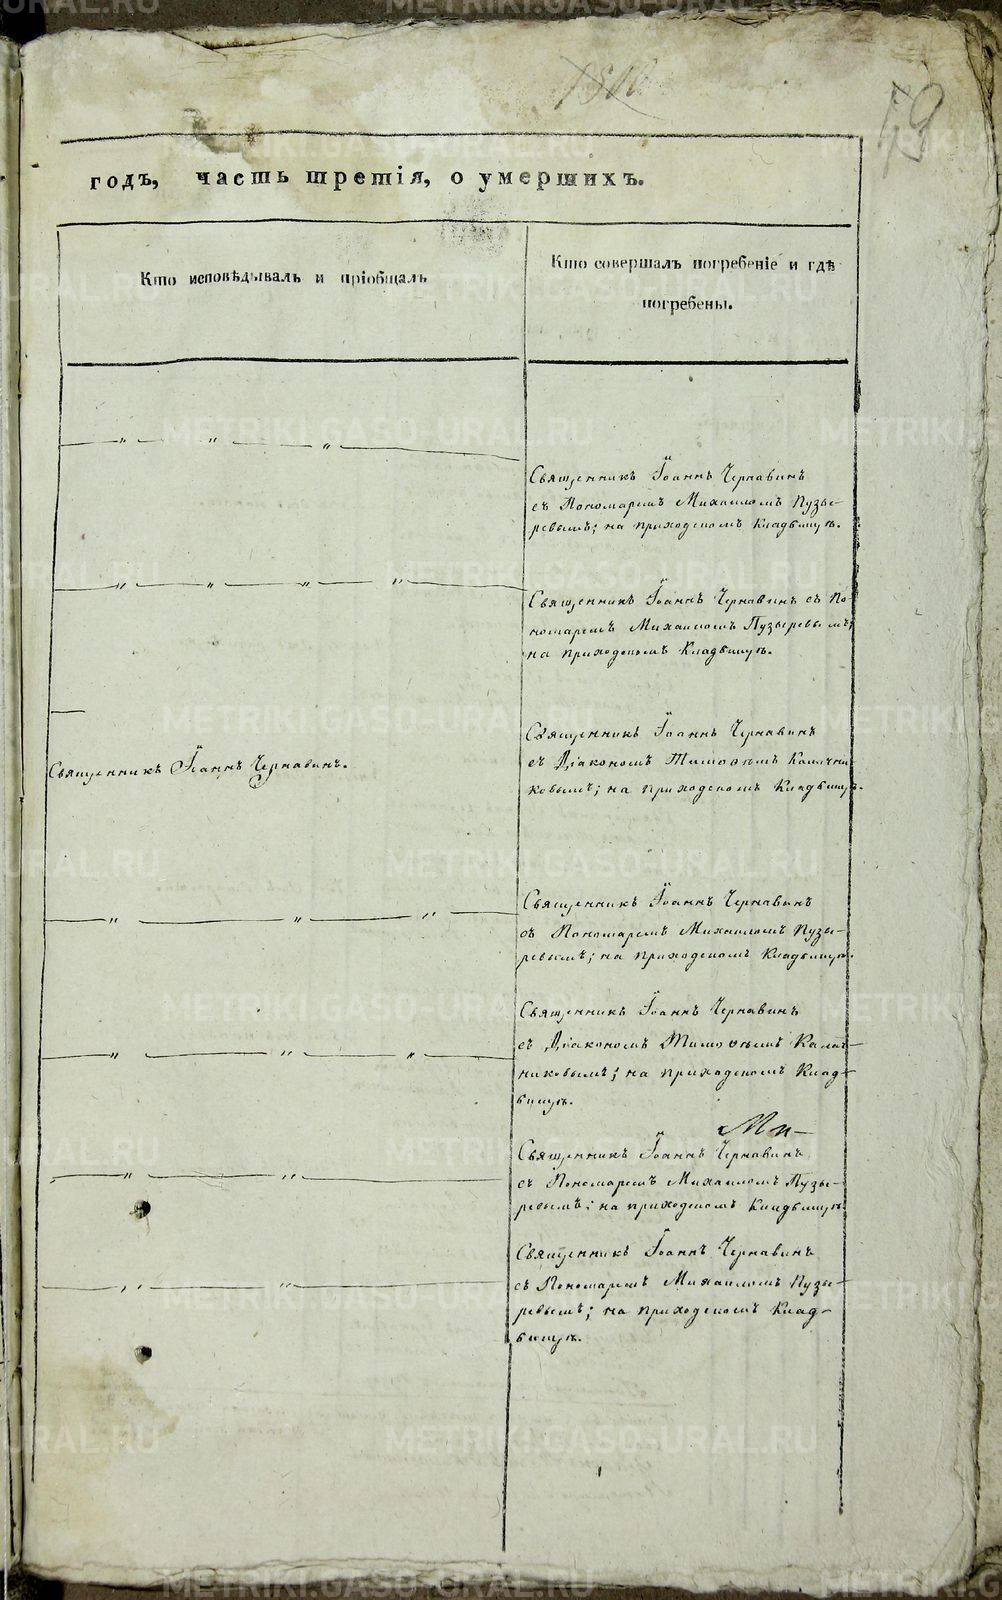 79
годъ, часть третія, о умершихъ.
Кто исповѣдывалъ и пріобщалъ
Кто совершалъ погребеніе и гдѣ
погребены.
Священникъ Іоаннъ Чернавинъ
съ Пономаремъ Михаиломъ Пузы-
ревымъ; на приходскомъ Кладбищѣ.
Священникъ Іоаннъ Чернавинъ съ По-
номаремъ Михаиломъ Пузыревымъ;
на приходскомъ Кладбищѣ.
Священникъ Іоаннъ Чернавинъ.
Священникъ Іоаннъ Чернавинъ
съ Діакономъ Тимоѳеемъ Калачни-
ковымъ; на приходскомъ Кладбищѣ.
Священникъ Іоаннъ Чернавинъ
съ Пономаремъ Михаиломъ Пузы-
ревымъ; на приходскомъ Кладбищѣ.
Священникъ Іоаннъ Чернавинъ
съ Діакономъ Тимоѳеемъ Калач-
никовымъ; на приходскомъ Клад-
бищѣ.
Священникъ Іоаннъ Чернавинъ
съ Пономаремъ Михаиломъ Пузы-
ревымъ; на приходскомъ Кладбищѣ.
Священникъ Іоаннъ Чернавинъ
съ Пономаремъ Михаиломъ Пузы-
ревымъ; на приходскомъ Клад-
бищѣ.
METRIKI.GASO-URAL.RU